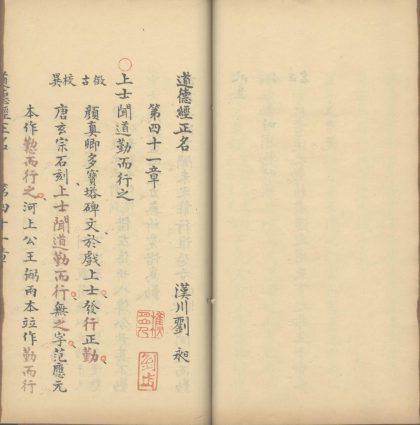 道德經正名
第四十一章
漢川劉昶
上士聞道勤而行之
徵古
顏真卿多寶塔碑文於戲上士發行正勤
校異
唐玄宗石刻上士聞道勤而行無之字范應元
本作懃而行之河上公王弼兩本竝作勤而行
道德經正名 第四十一章